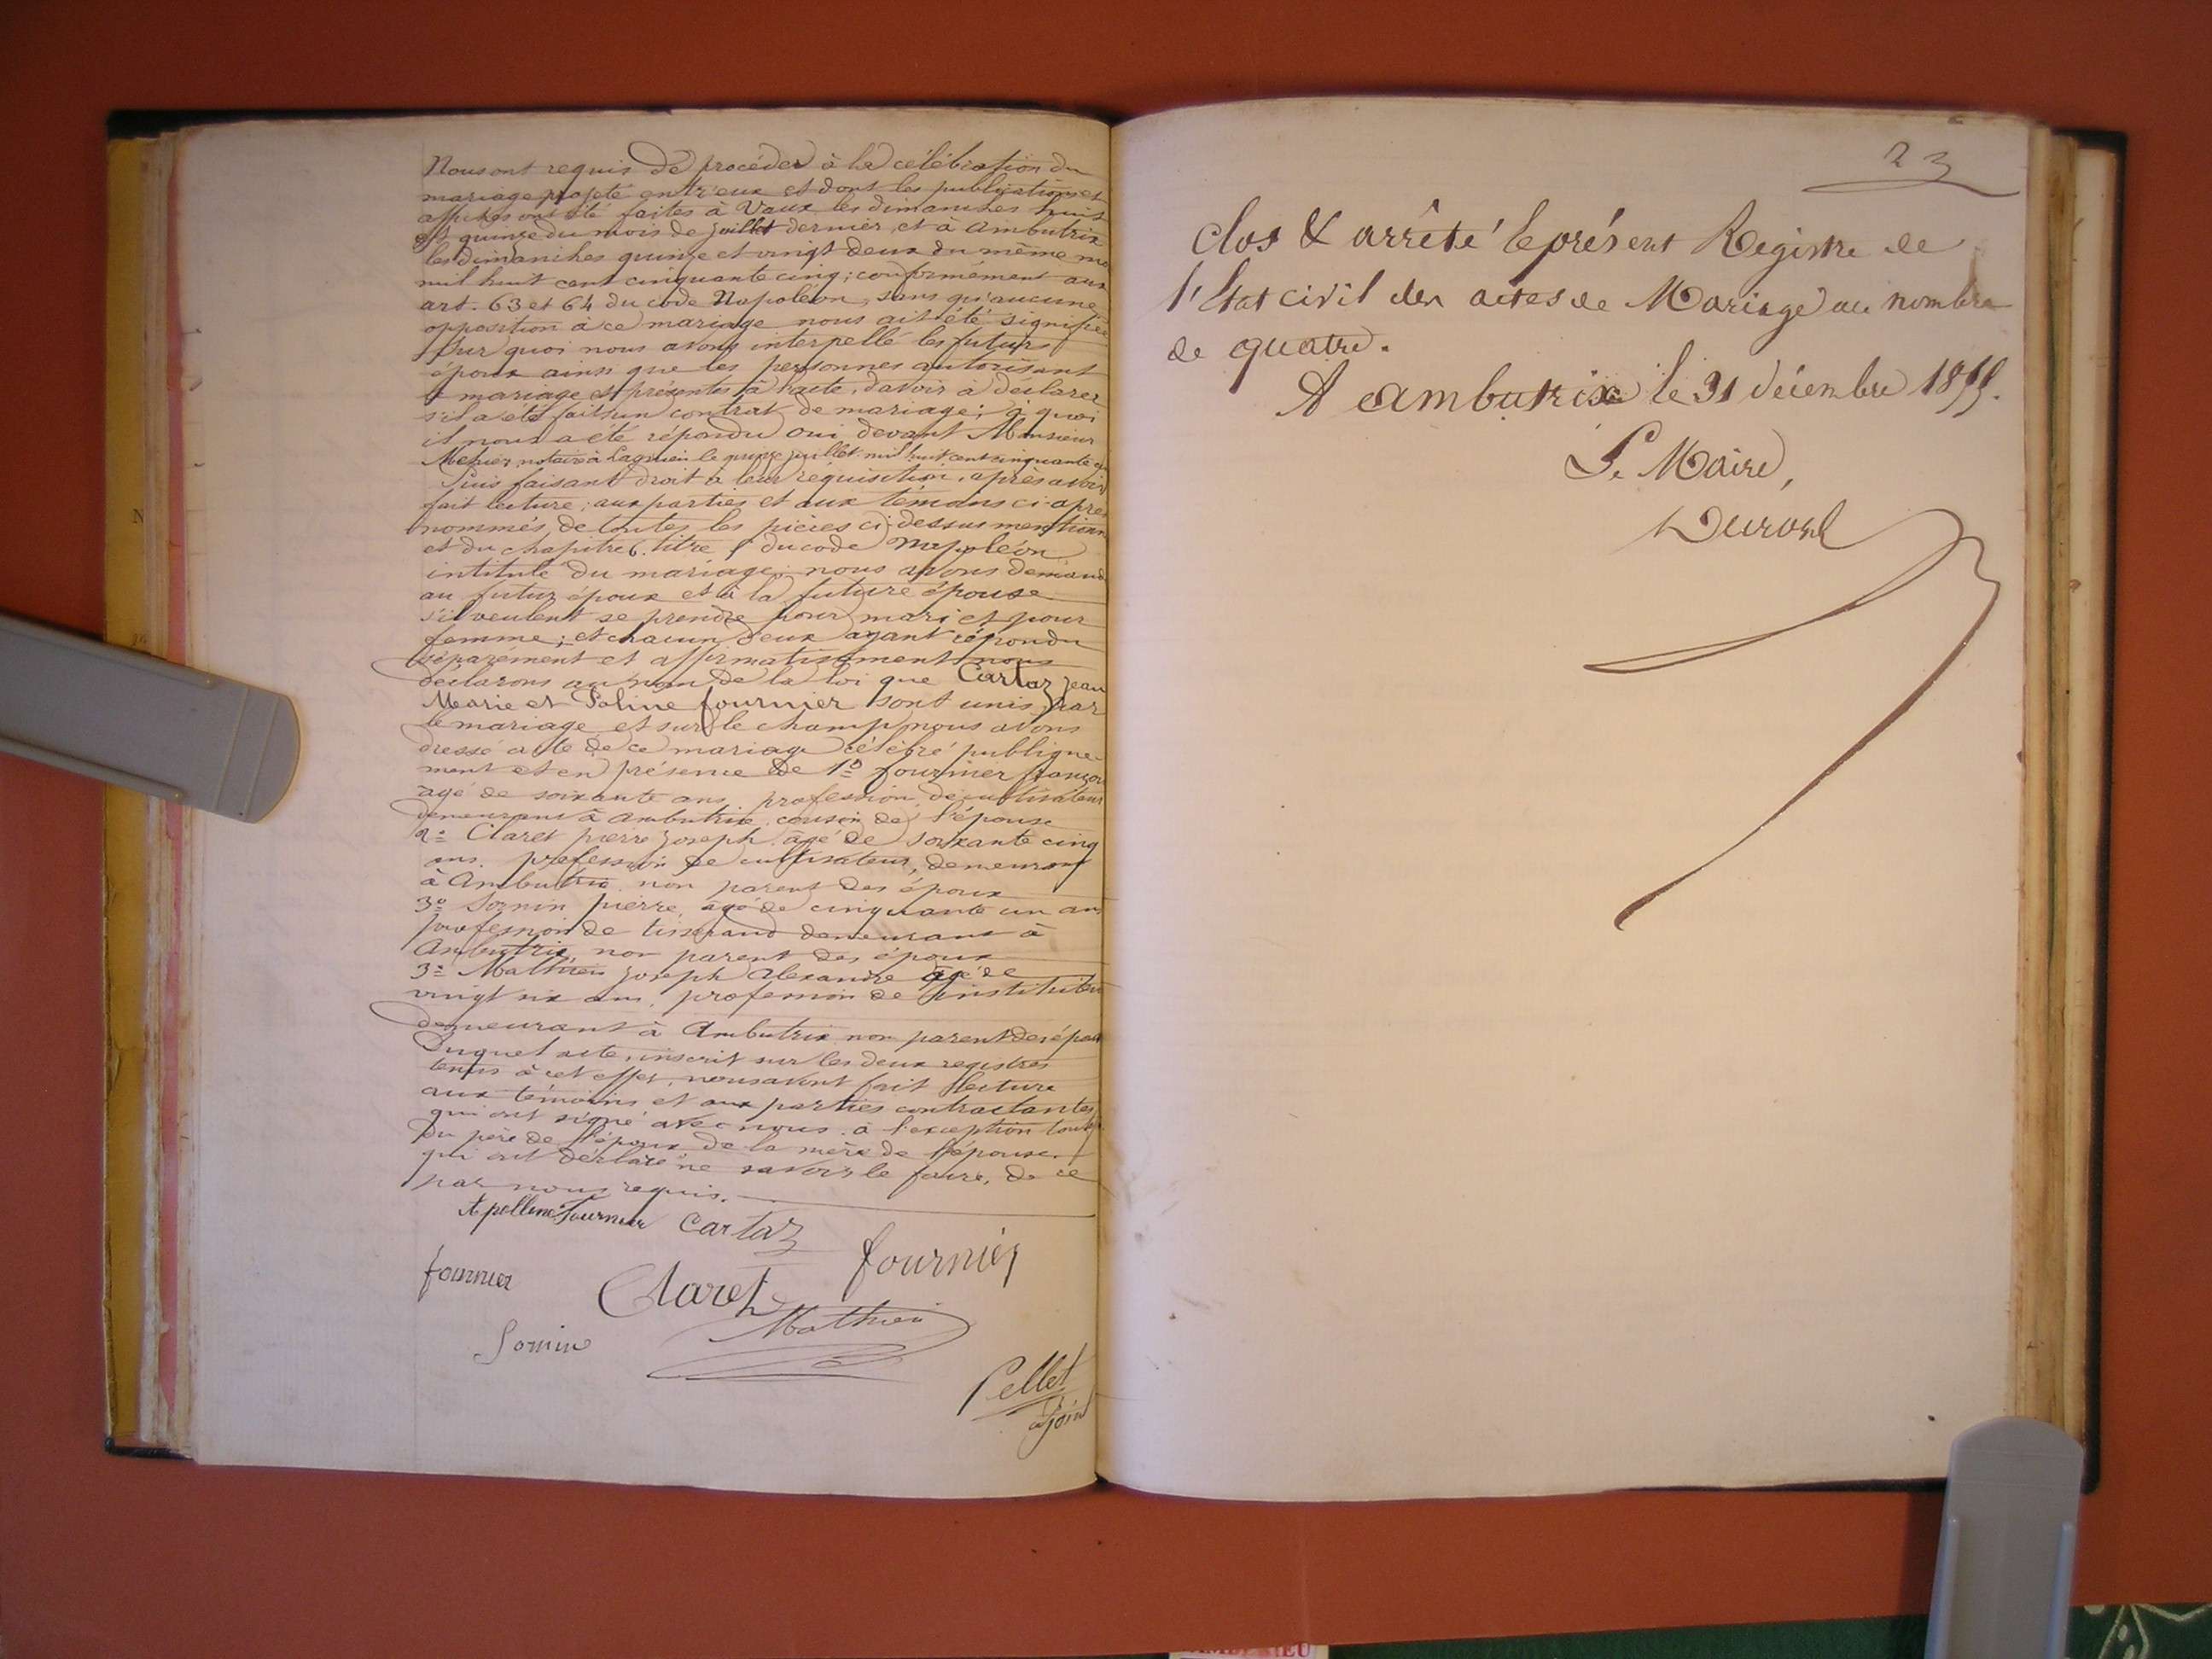 Nous ont requis de procéder à la célébration du
mariage projeté entr'eux et dont les publications et
affiches ont été faites à Vaux les dimanches huit
et quinze du mois de juillet dernier, et à Ambutrix
les dimanches quinze et vingt deux du même mo
mil huit cent cinquante cinq; conformément aux
art. 63 et 64 du code Napoléon, sans qu'aucune
opposition à ce mariage nous ait été signifiée
Sur quoi nous avons interpellé les futurs
époux ainsi que les personnes autorisant
le mariage et présentes à l'acte, d'avoir à déclarer
s'il a été fait un contrat de mariage; à quoi
il nous a été répondu oui devant Monsieur
notaire à Lagnieu le quinze juillet mil huit cent cinquante
Puis faisant droit à leur réquisition, après avoir
fait lecture, aux parties et aux témoins ci-après
nommés, de toutes les pièces ci-dessus mentionn
et du chapitre 6. titre du code Napoléon
intitulé du mariage, nous avons demand
au futur époux et à la future épouse
s'il veulent se prendre pour mari et pour
femme; et chacun d'eux ayant répondu
séparément et affirmativement nous
déclarons au nom de la loi que Cartaz jean
Marie et Poline fournier sont unis par
le mariage, et sur le champ nous avons
dressé acte de ce mariage célébré publique-
ment et en présence de 1º fournier françoi
agé de soixante ans, profession de cultivateur
demeurant à Ambutrix, cousin de l'épouse
2º Claret pierre joseph, âgé de soixante cinq
ans, profession de cultivateur, demeurant
à Ambutrix, non parent des époux
3º Sornin pierre, âgé de cinquante un an
profession de tisserand demeurant à
Ambutrix, non parent des époux
3º Mathieu joseph Alexandre âgé de
vingt six ans, profession de instituteur
demeurant à Ambutrix non parent des époux
Duquel acte, inscrit sur les deux registres
tenus à cet effet, nous avons fait lecture
aux témoins et aux parties contractantes
qui ont signé avec nous à l'exception
du père de l'époux de la mère de l'épouse
qui ont déclaré ne savoir le faire, de ce
par nous requis.
Fournier Cartaz
fournier Claret fournier
Sornin Mathieu
Pellet
adjoint
23
Clos & arrêté le présent Registre de
l'Etat civil des actes de Mariage au nombre
de quatre.
A Ambutrix le 31 décembre 1855.
Le Maire,
Durand